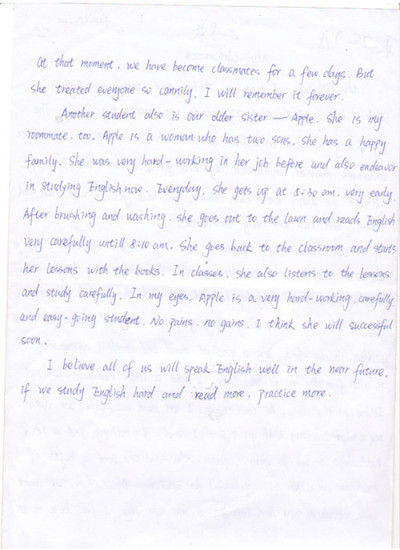 At that moment. we have become classmates for a few days. But
she treated everyone so cannily. I will remember it forever.
Another student also is our older sister — Apple. She is my
roommate. too. Apple is a woman who has two sons. She has a happy
family. She was very hard-working in her job before and also endeavor
in studying English now. Everyday. she gets up at 5:30 am. very early.
After brushing and washing. she goes out to the lawn and reads English
very carefully. untill 8:00 am. She goes back to the classroom and starts
her lessons with the books. In classes. she also listens to the lessons
and study carefully. In my eyes. Apple is a very hard-working. carefully
and easy-going student. No pains. no gains. I think she will successful
soon.
I believe all of us will speak English well in the near future.
If we study English hard and read more. practice more.